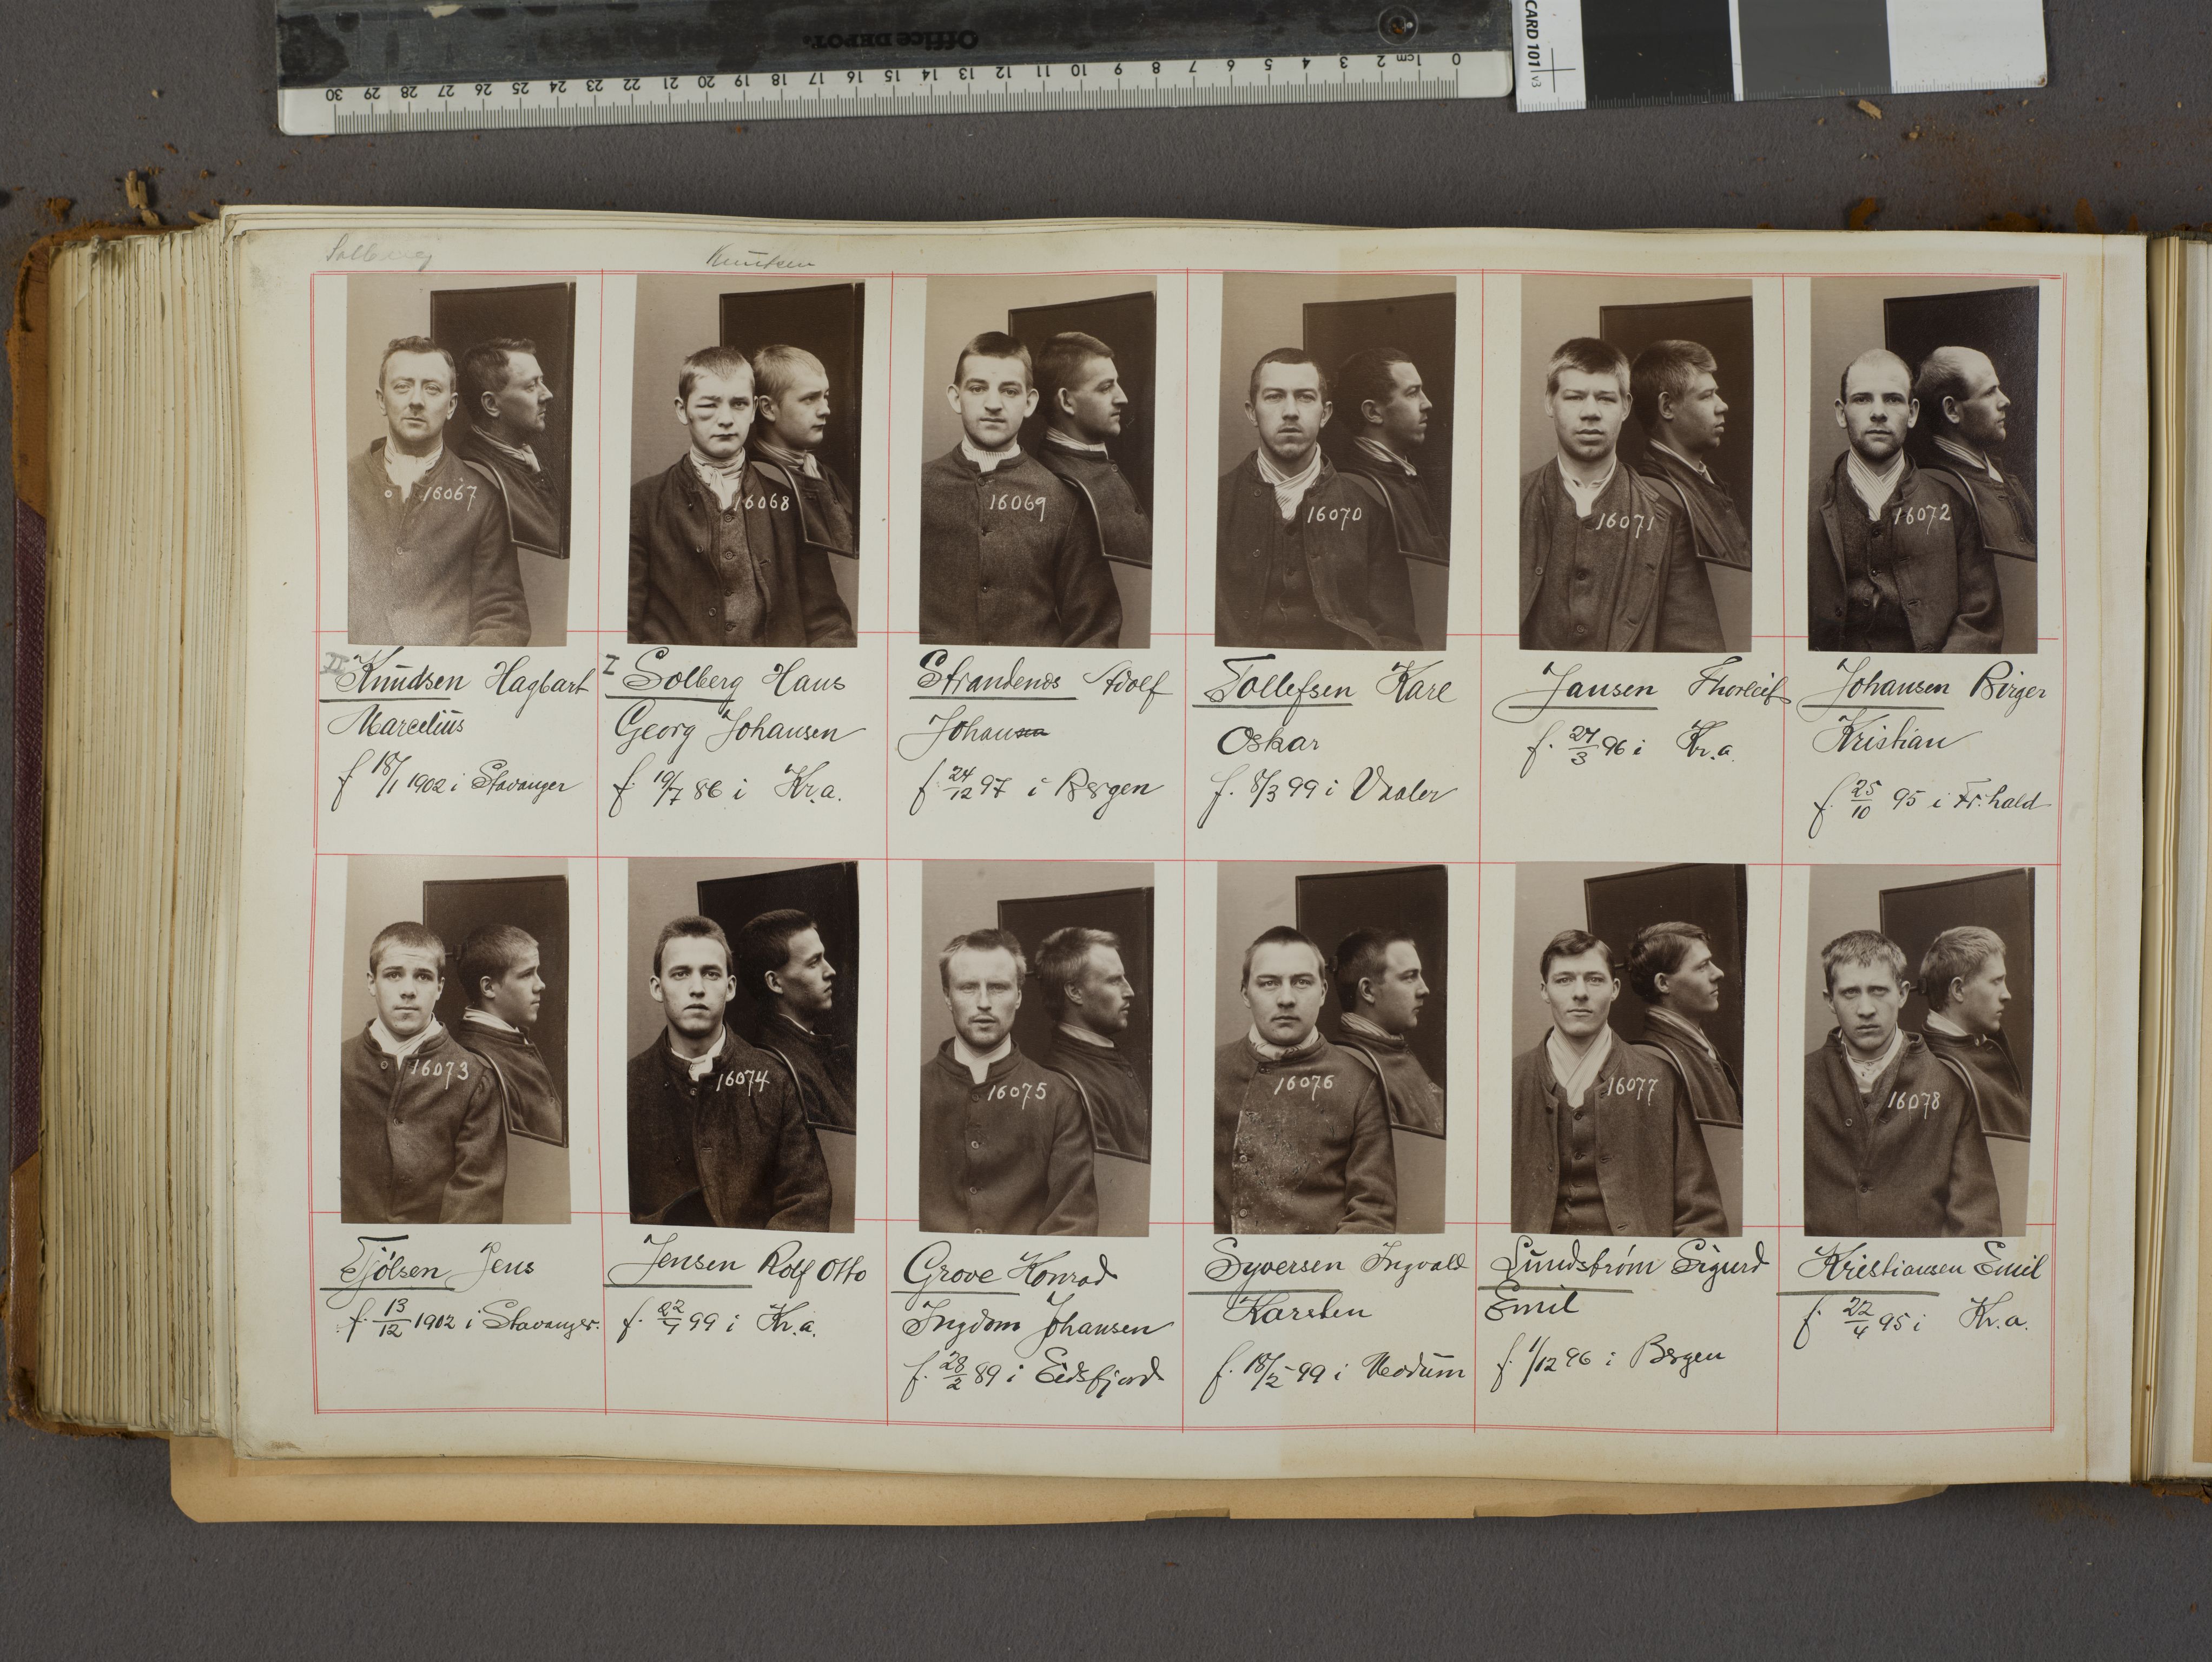 Office DEPOT.
0 1cm 2 3 4 5 6 7 8 9 10 11 12 13 14 15 16 17 18 19 20 21 22 23 24 25 26 27 28 29 30
CARD 101 v3
Solberg
Knudsen
16067
16068
16069
16070
16071
16072
II Knudsen Hagbart
Marcelius
f 18/1 1902 i Stavanger
I Solberg Hans
Georg Johansen
f. 19/7 86 i Kr.a.
Strandenos Adolf
Johansen
f. 24/12 97 i Bergen
Tollefsen Karl
Oskar
f. 8/3 99 i Vaaler
Jansen Thorleif
f. 27/3 96 i Kr.a.
Johansen Birger
Kristian
f. 25/10 95 i Fr.hald
16073
16074
16075
16076
16077
16078
Tjölsen Jens
f. 13/12 1902 i Stavanger.
Jensen Rolf Otto
f. 22/7 99 i Kr.a.
Grove Konrad
Ingdom Johansen
f. 28/2 89 i Eidsfjord
Syversen Ingvald
Karsten
f. 18/2 99 i Modum
Lundstrøm Sigurd
Emil
f. 1/12 96 i Bergen
Kristiansen Emil
f. 22/4 95 i Kr.a.